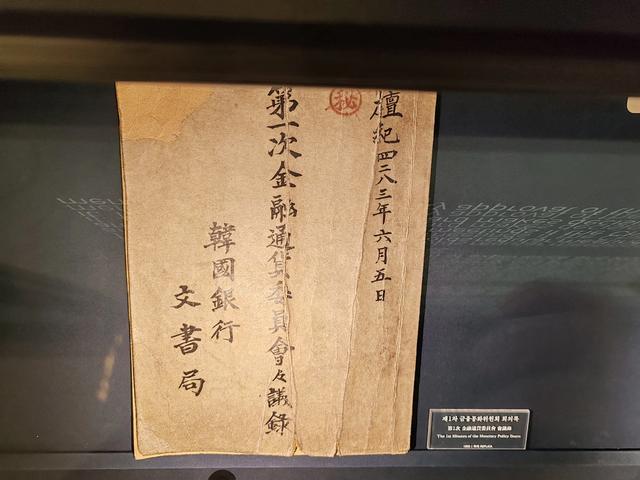 檀紀四二八三年六月五日
秘
第一次金融通貨委員會々議錄
韓國銀行
文書局
제1차 금융통화위원회 회의록
第1次 金融通貨委員會 會議錄
The 1st Minutes of the Monetary Policy Board
1950 | 복제 REPLICA